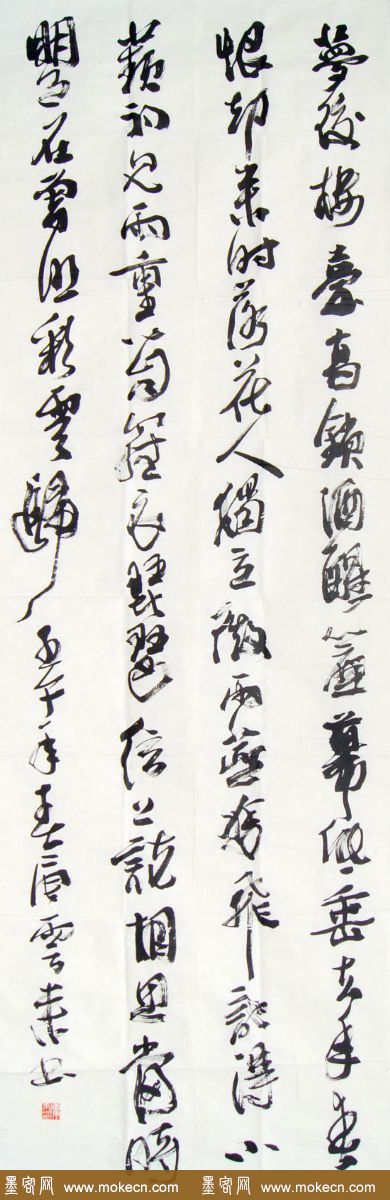 夢後樓臺高鎖酒醒簾幕低垂去年春
恨却來時落花人獨立微雨燕雙飛記得小
蘋初見兩重心字羅衣琵琶弦上說相思當時
明月在曾照彩雲歸 午年春 雲 書
墨客网 www.mokecn.com 墨客网 www.mokecn.com